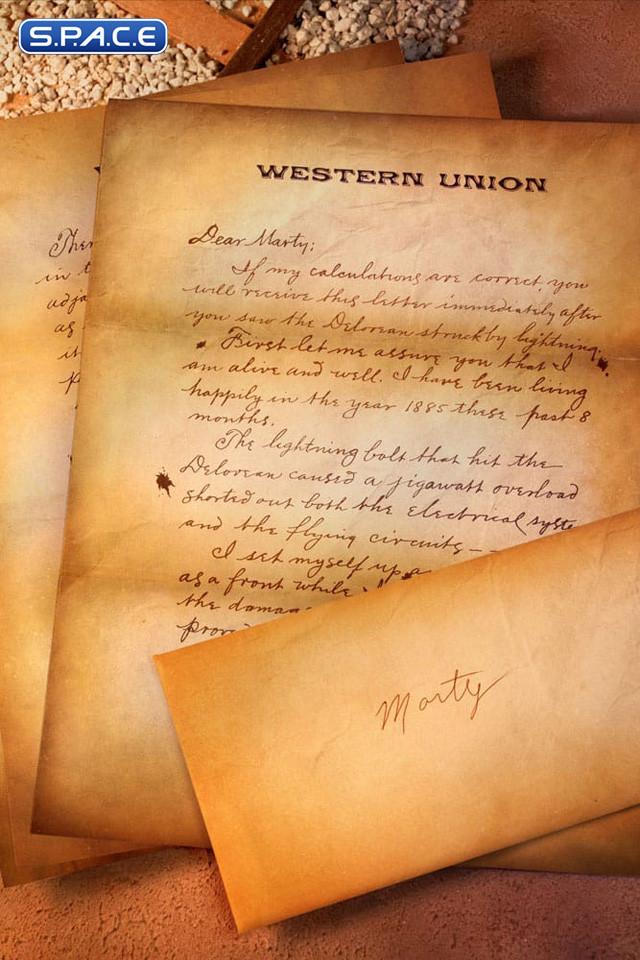 S.P.A.C.E
WESTERN UNION
Dear Marty;
If my calculations are correct, you
will receive this letter immediately after
you saw the Delorean struck by lightning.
First let me assure you that I
am alive and well. I have been living
happily in the year 1885 these past 8
months.
The lightning bolt that hit the
Delorean caused a jigawatt overload
shorted out both the electrical syste
and the flying circuits — —
I set myself up a
as a front while
the damag
provi
in t
adja
as
it
p
Marty